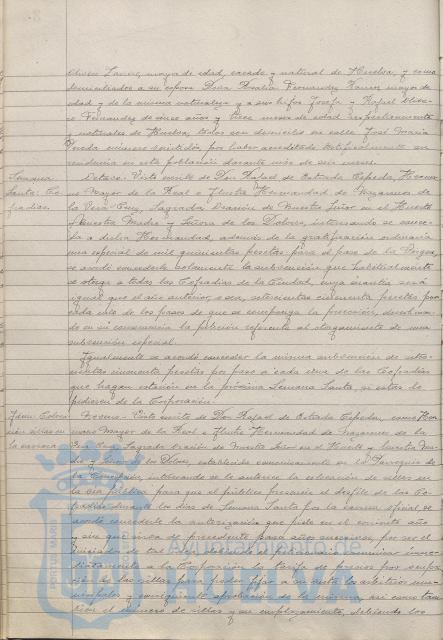 mayor de edad, casado y natural de Huelva, y como
domiciliados a su esposa Doña Rosalía Fernandez Ramos mayor de
edad y de la misma naturaleza y a sus hijos Josefa y Rafael
Fernandez de once años y trece meses de edad respectivamente
y naturales de Huelva, todos con domicilio en calle José María
número por haber acreditado
residencia en esta población durante más de seis meses.
Semana
Santa: Co
fradías.
Octavo: Visto escrito de Don Rafael de Estrada Cepeda, Herma
no Mayor de la Real e Ilustre Hermandad de Nazarenos de
la Vera-Cruz, Sagrada Oración de Nuestro Señor en el Huerto
y Nuestra Madre y Señora de los Dolores, interesando se conce
da a dicha Hermandad, además de la gratificación ordinaria
una especial de mil quinientas pesetas para el paso de la Virgen,
se acordó concederle solamente la subvención que habitualmente
se otorga a todas las Cofradías de la Ciudad, cuya cuantía será
igual que el año anterior, o sea, setecientas cincuenta pesetas por
cada uno de los pasos de que se componga la procesión, desestiman
do en su consecuencia la petición referente al otorgamiento de una
subvención especial.
Igualmente se acordó conceder la misma subvención de sete
cientas cincuenta pesetas por paso a cada una de las Cofradías
que hagan estación en la próxima Semana Santa, si éstas lo
pidiesen de la Corporación.
Idem: Coloca
ción sillas en
la carrera
Noveno - Visto escrito de Don Rafael de Estrada Cepeda, como Her
mano Mayor de la Real e Ilustre Hermandad de Nazarenos de la
Vera-Cruz, Sagrada Oración de Nuestro Señor en el Huerto y Nuestra Ma
dre y Señora de los Dolores, establecida canónicamente en la Parroquia de
la Concepción, interesando se le autorice la colocación de sillas en
la vía pública para que el público presencie el desfile de las Co
fradías durante los días de Semana Santa por la carrera oficial, se
acordó concederle la autorización que pide en el corriente año
y sin que sirva de precedente para años sucesivos, por ser el
iniciador de tal idea, debiendo la peticionaria comunicar
a la Corporación la tarifa de precios por
de las sillas para poder fijar a su vista los arbitrios mu
nicipales y consiguiente aprobación de la misma, así como tam
bien el número de sillas y su emplazamiento, debiendo los
Ayuntamiento de
PORTUS MARIS